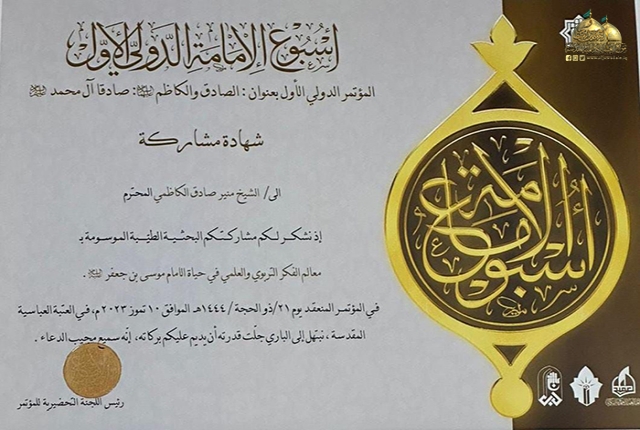 أسبوع الإمامة الدولي الأول
المؤتمر الدولي الأول بعنوان : الصادق والكاظم : صادقا آل محمد
شهادة مشاركة
الى / الشيخ منير صادق الكاظمي المحترم
إذ نشكر لكم مشاركتكم البحثية الطيّبة الموسومة بـ
معالم الفكر التربوي والعلمي في حياة الامام موسى بن جعفر .
في المؤتمر المنعقد يوم ٢١/ ذو الحجة / ١٤٤٤هـ الموافق ١٠ تموز ٢٠٢٣م، في العتبة العباسية
المقدسة، نبتهل إلى الباري جلّت قدرته أن يديم عليكم بركاته، إنّه سميع مجيب الدعاء .
رئيس اللجنة التحضيرية للمؤتمر
أسبوع الإمامة